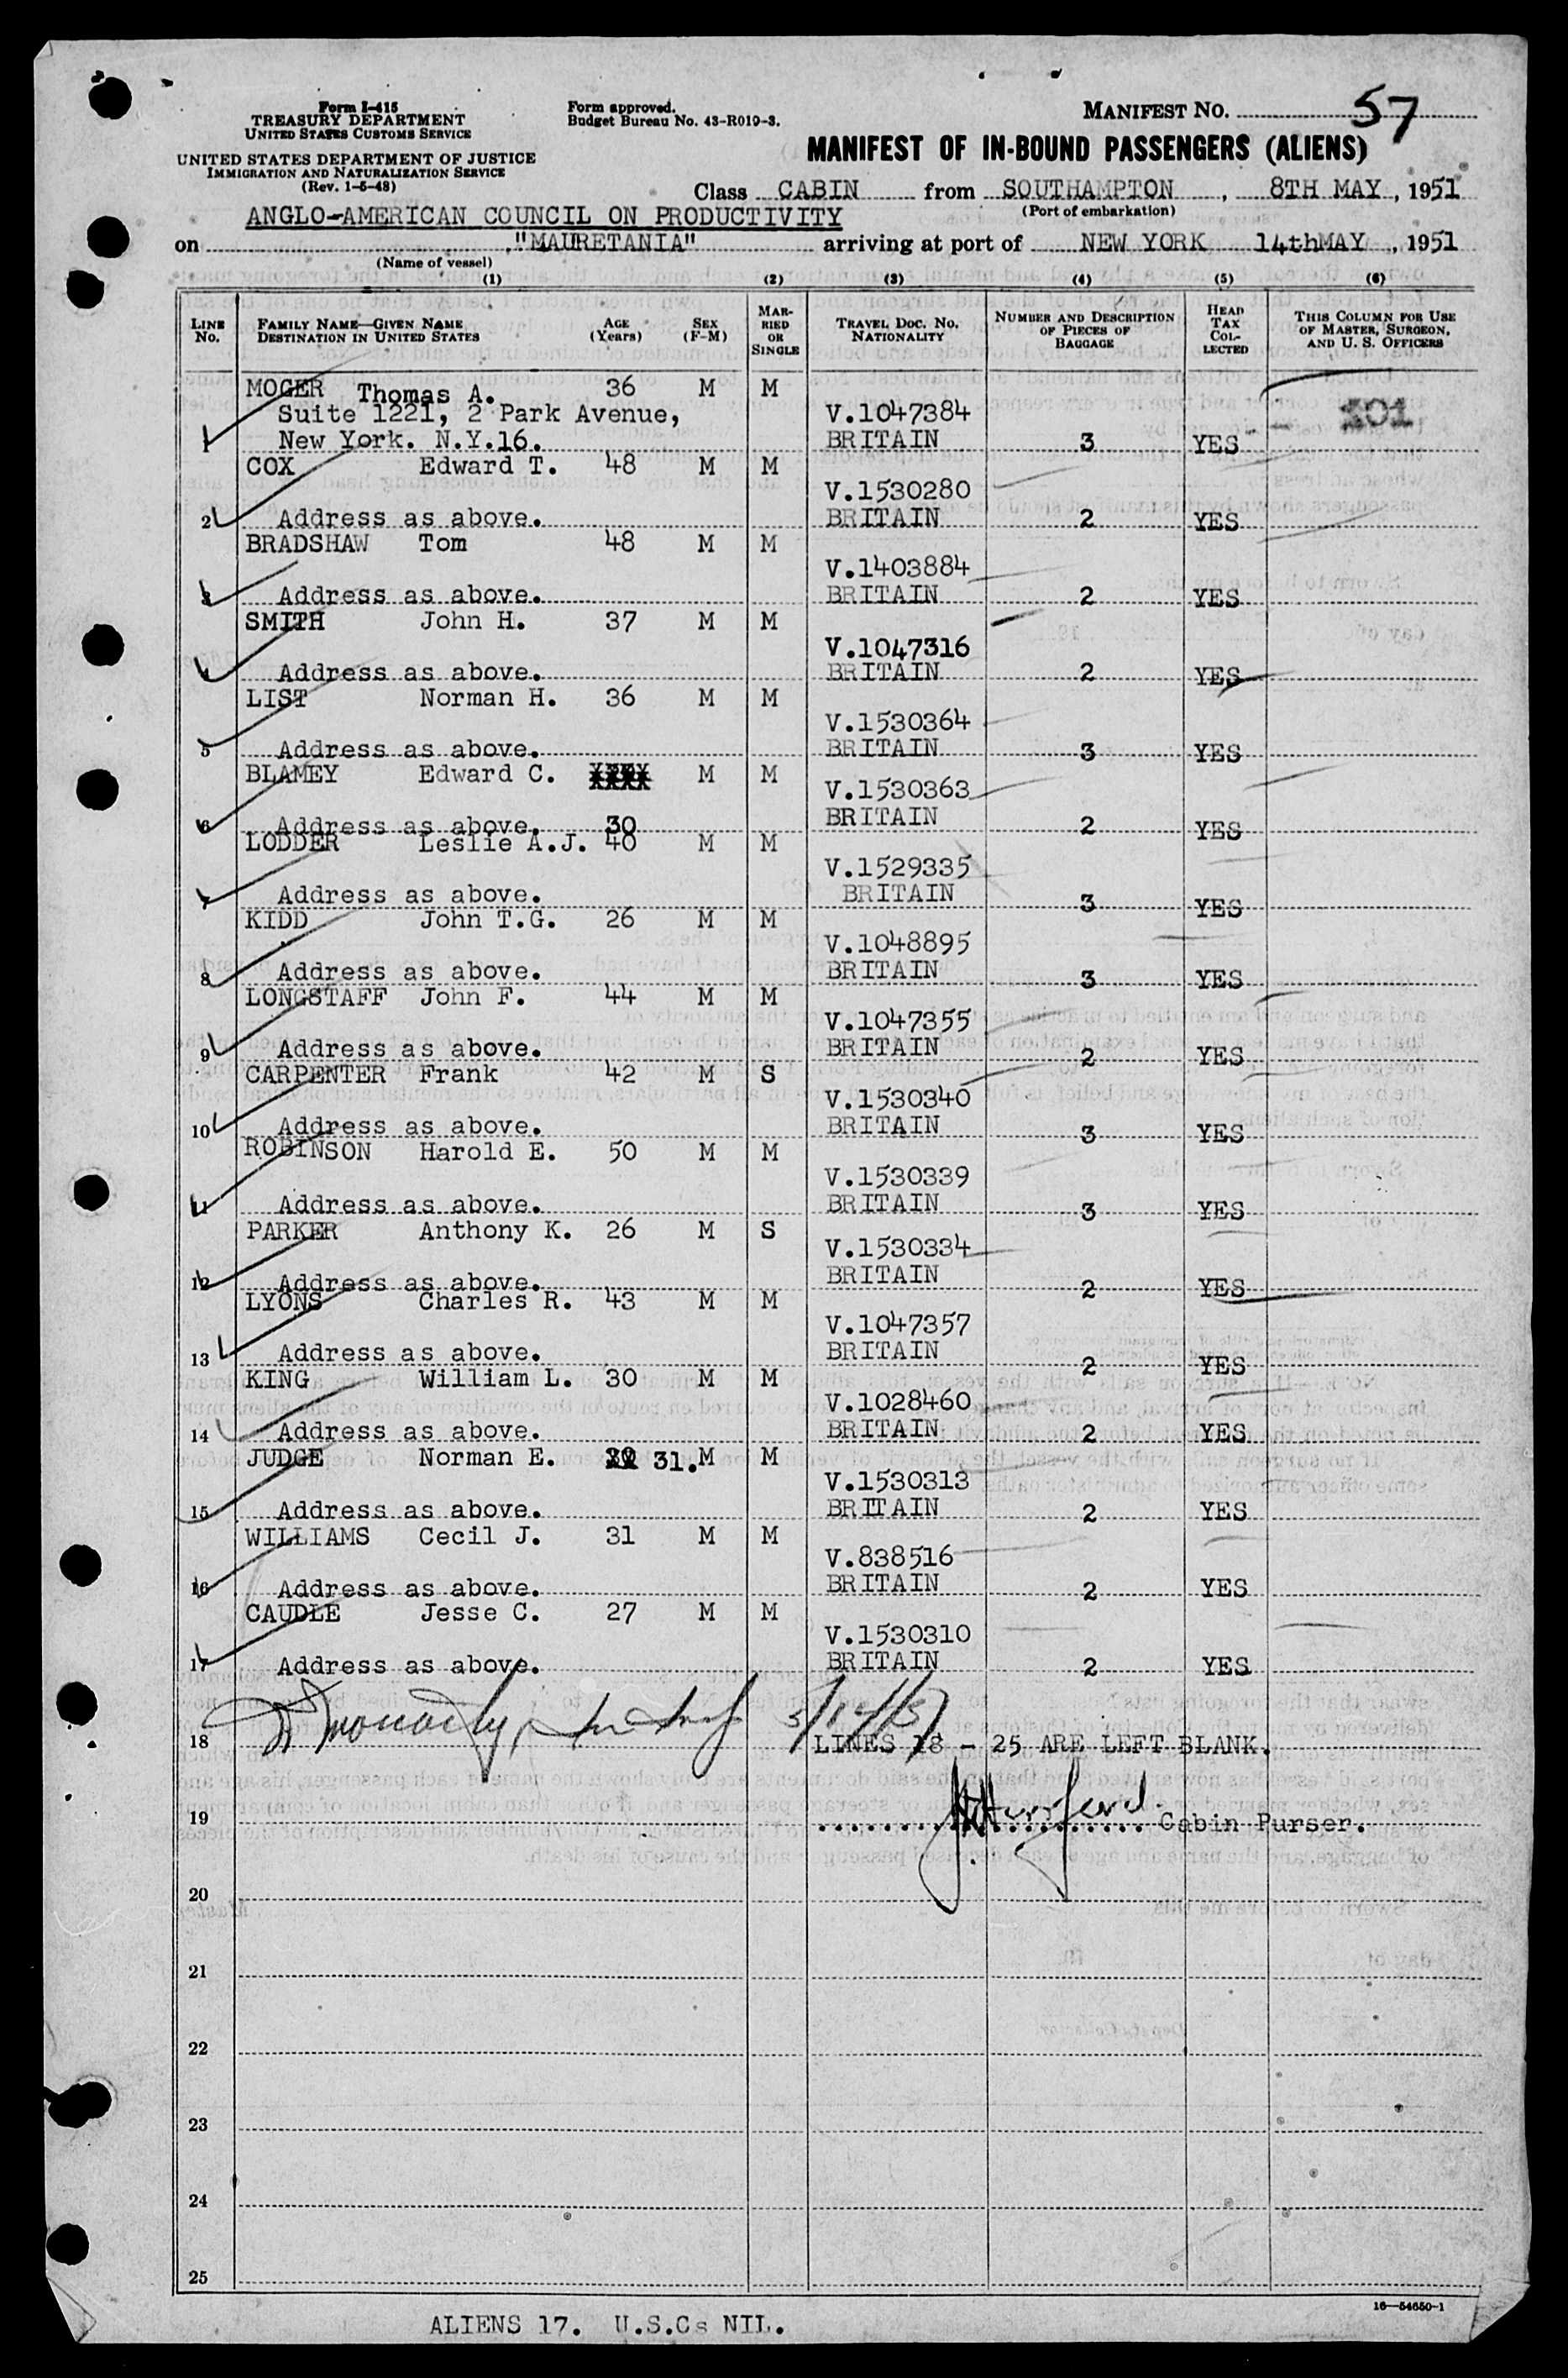 Form I-415
TREASURY DEPARTMENT
UNITED STATES CUSTOMS SERVICE
UNITED STATES DEPARTMENT OF JUSTICE
IMMIGRATION AND NATURALIZATION SERVICE
(Rev. 1-5-48)
Form approved.
Budget Bureau No. 43-R019-3.
MANIFEST NO. 57
MANIFEST OF IN-BOUND PASSENGERS (ALIENS)
Class CABIN from SOUTHAMPTON, 8TH MAY, 1951
(Port of embarkation)
ANGLO-AMERICAN COUNCIL ON PRODUCTIVITY
on "MAURETANIA" arriving at port of NEW YORK 14thMAY, 1951
(Name of vessel)
(1) (2) (3) (4) (5) (6)
LINE No. FAMILY NAME—GIVEN NAME DESTINATION IN UNITED STATES AGE (Years) SEX (F-M) MARRIED OR SINGLE TRAVEL DOC. NO. NATIONALITY NUMBER AND DESCRIPTION OF PIECES OF BAGGAGE HEAD TAX COLLECTED THIS COLUMN FOR USE OF MASTER, SURGEON, AND U. S. OFFICERS
MOGER Thomas A. 36 M M
Suite 1221, 2 Park Avenue, V.1047384 301
1 New York. N.Y.16. BRITAIN 3 YES
COX Edward T. 48 M M
V.1530280
2 Address as above. BRITAIN 2 YES
BRADSHAW Tom 48 M M
V.1403884
3 Address as above. BRITAIN 2 YES
SMITH John H. 37 M M
V.1047316
4 Address as above. BRITAIN 2 YES
LIST Norman H. 36 M M
V.1530364
5 Address as above. BRITAIN 3 YES
BLAMEY Edward C. M M
V.1530363
6 Address as above. 30 BRITAIN 2 YES
LODDER Leslie A.J. 40 M M
V.1529335
7 Address as above. BRITAIN 3 YES
KIDD John T.G. 26 M M
V.1048895
8 Address as above. BRITAIN 3 YES
LONGSTAFF John F. 44 M M
V.1047355
9 Address as above. BRITAIN 2 YES
CARPENTER Frank 42 M S
V.1530340
10 Address as above. BRITAIN 3 YES
ROBINSON Harold E. 50 M M
V.1530339
11 Address as above. BRITAIN 3 YES
PARKER Anthony K. 26 M S
V.1530334
12 Address as above. BRITAIN 2 YES
LYONS Charles R. 43 M M
V.1047357
13 Address as above. BRITAIN 2 YES
KING William L. 30 M M
V.1028460
14 Address as above. BRITAIN 2 YES
JUDGE Norman E. 31. M M
V.1530313
15 Address as above. BRITAIN 2 YES
WILLIAMS Cecil J. 31 M M
V.838516
16 Address as above. BRITAIN 2 YES
CAUDLE Jesse C. 27 M M
V.1530310
17 Address as above. BRITAIN 2 YES
5/14/51
18 LINES 18 - 25 ARE LEFT BLANK.
19 Cabin Purser.
20
21
22
23
24
25
16—54650-1
ALIENS 17. U.S.Cs NIL.